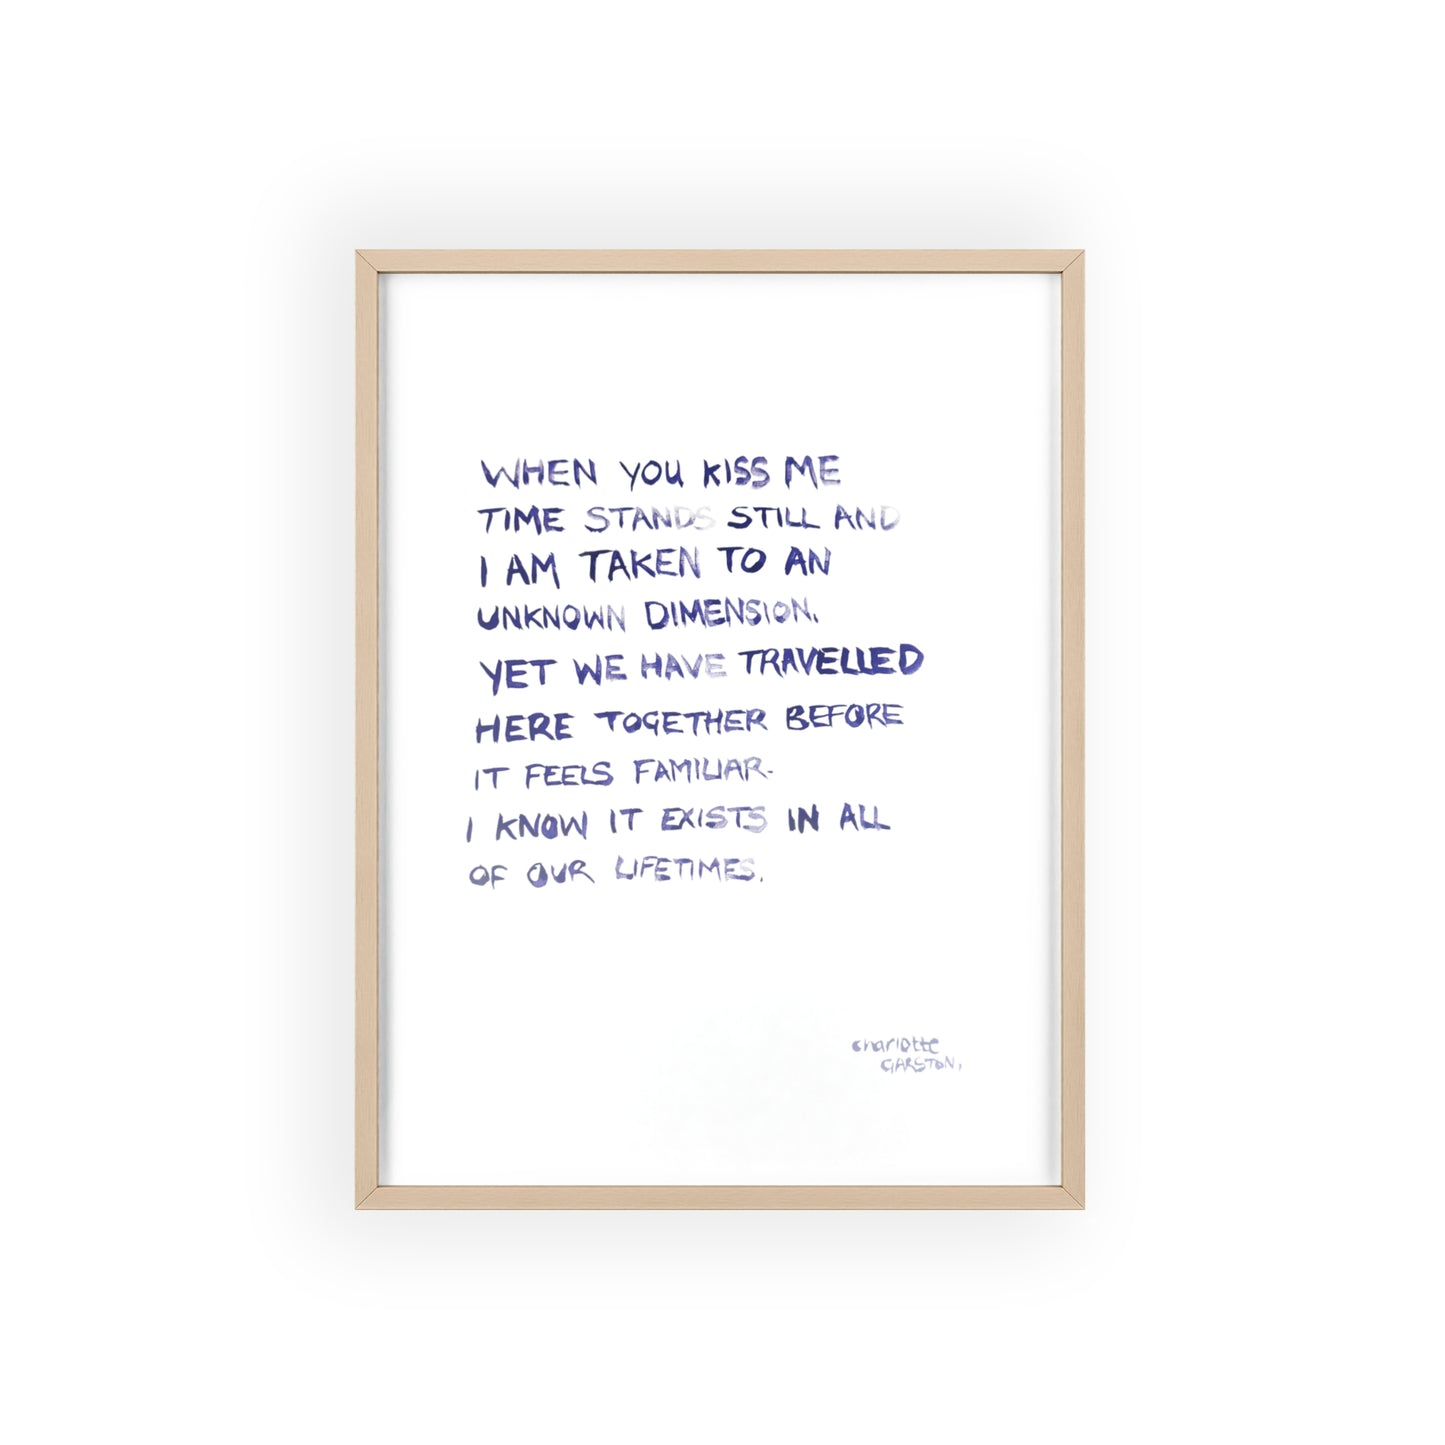 WHEN YOU KISS ME
TIME STANDS STILL AND
I AM TAKEN TO AN
UNKNOWN DIMENSION.
YET WE HAVE TRAVELLED
HERE TOGETHER BEFORE
IT FEELS FAMILIAR-
I KNOW IT EXISTS IN ALL
OF OUR LIFETIMES.
charlotte
GARSTON.